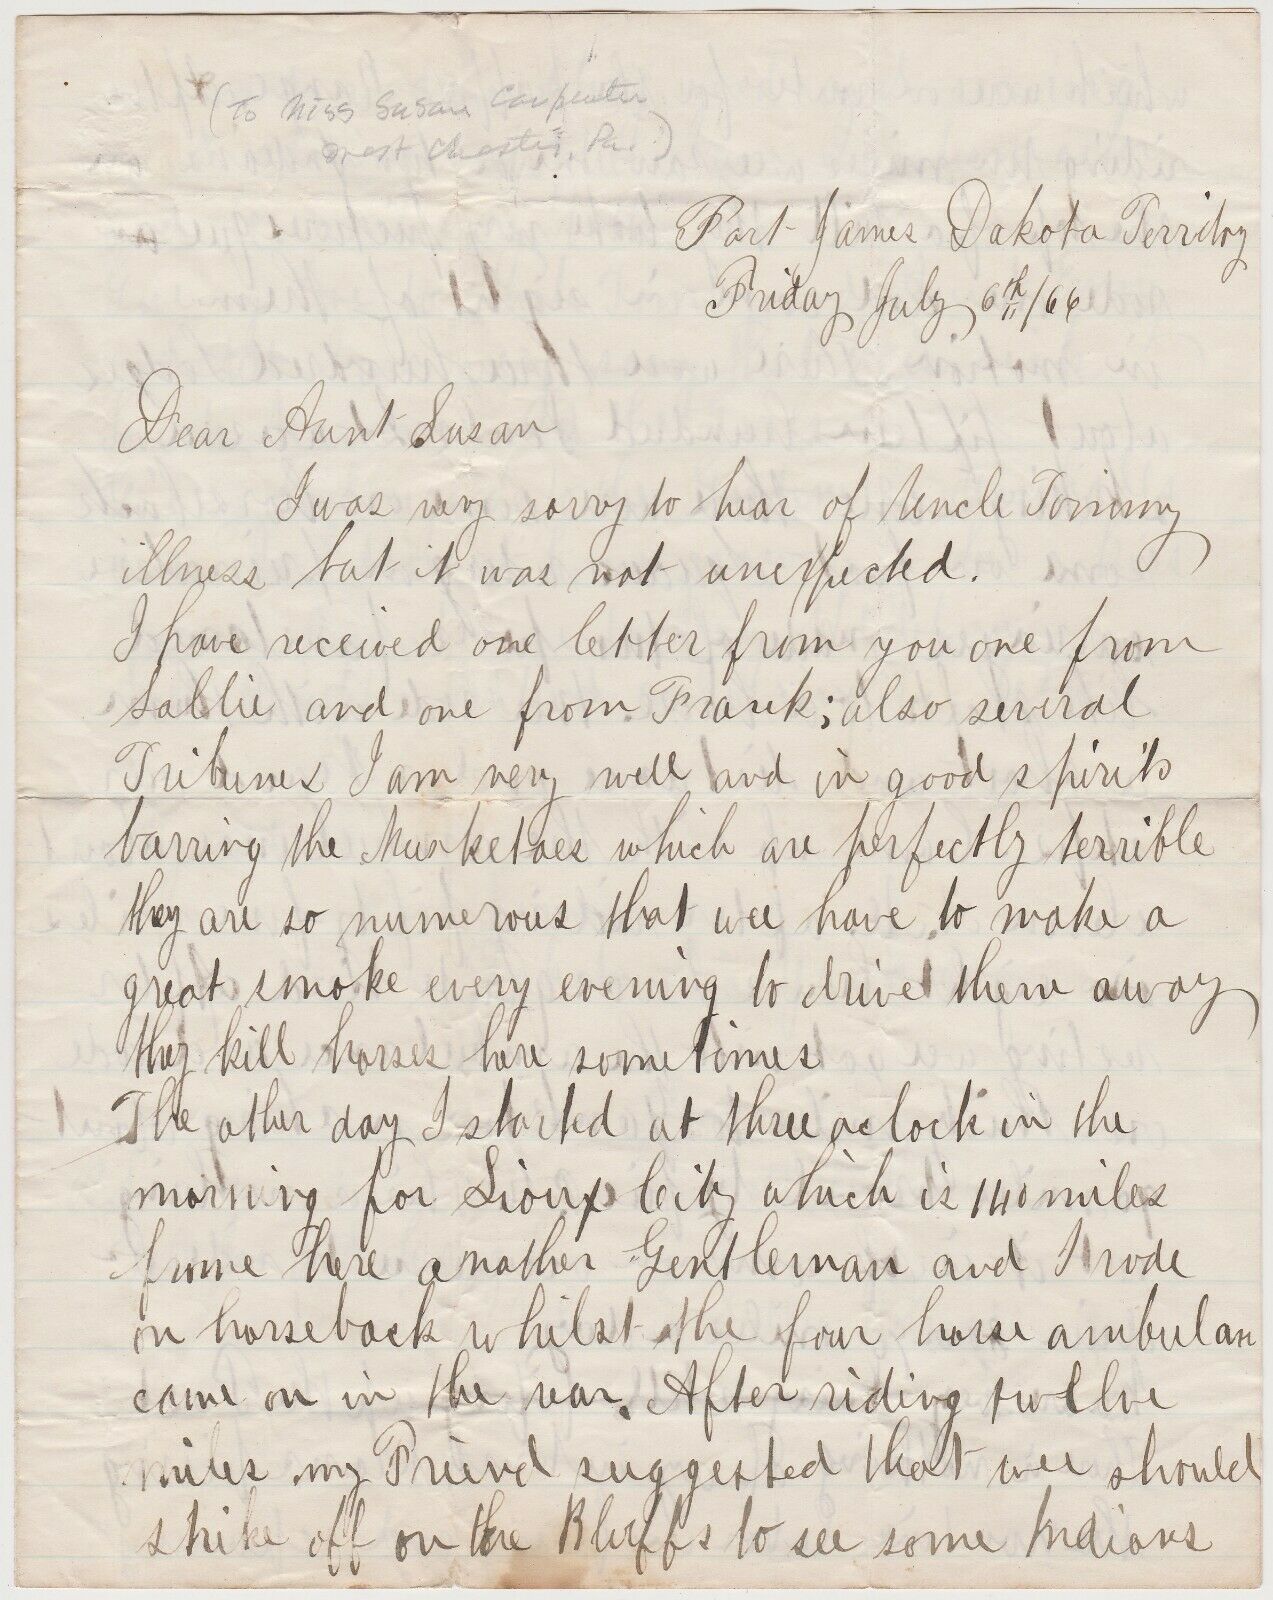 (To Miss Susan Carpenter
West Chester, Pa.)
Fort James Dakota Territory
Friday July 6th/66
Dear Aunt Susan
I was very sorry to hear of Uncle Tommy
illness but it was not unexpected.
I have received one letter from you one from
Sallie and one from Frank; also several
Tribunes I am very well and in good spirits
barring the Musketoes which are perfectly terrible
they are so numerous that wee have to make a
great smoke every evening to drive them away
they kill horses here sometimes
The other day I started at three oclock in the
morning for Sioux City which is 140 miles
frome here another Gentleman and I rode
on horseback whilst the four horse ambulan
came on in the rear. After riding twelve
miles my Friend suggested that wee should
strike off on the Bluffs to see some Indians